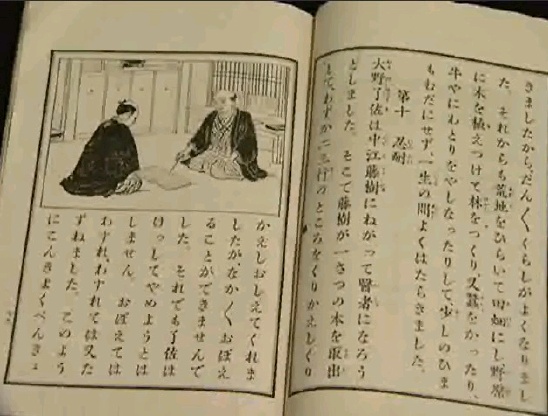 きましたから、だん〱くらしがよくなりまし
た。それからも荒地をひらいて田畑にし、野原
に木を植えつけて林をつくり、又蠶をかったり、
牛やにわとりをやしなったりして、少しのひま
もむだにせず、一生の間よくはたらきました。
第十 忍耐
大野了佐は中江藤樹にねがって醫者になろう
としました。そこで藤樹が一さつの本を取出
して、わずか二三行のところをくりかえしくり
かえしおしえてくれま
したが、なか〱おぼえ
ることができませんで
した。それでも了佐は
けっしてやめようとは
しません。おぼえては
わすれ、わすれては又た
ずねました。このよう
にこんきよくべんきょ